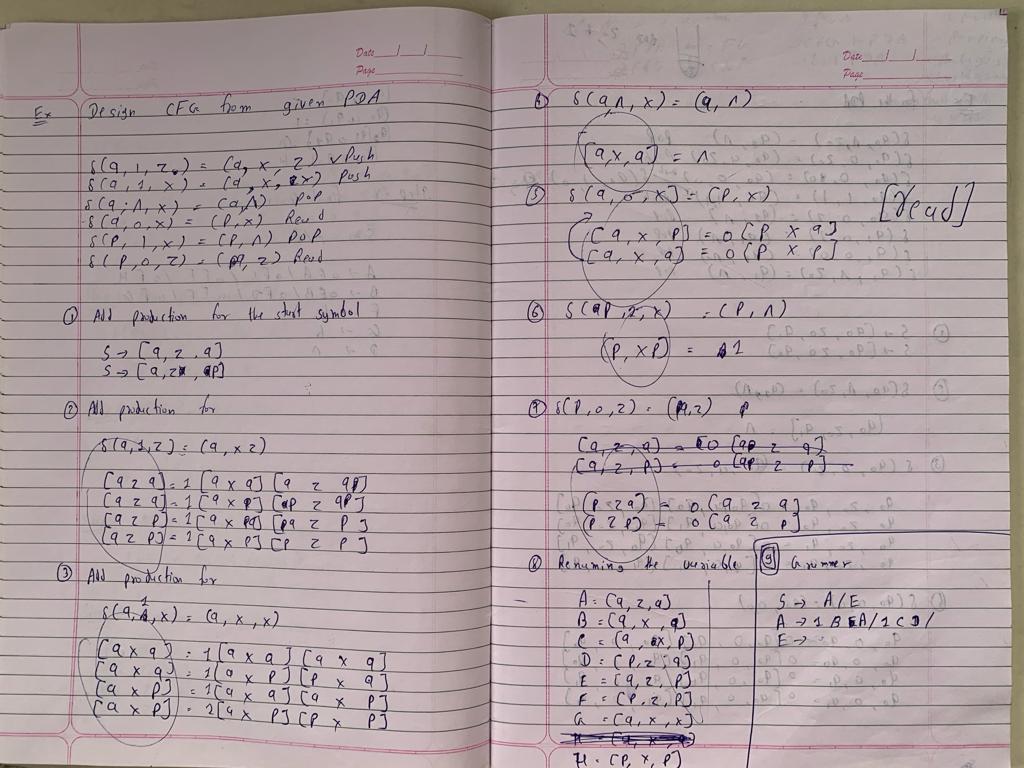 Date / /
Page
Ex Design CFG from given PDA
δ(q, 1, z.) = (q, x, z) ✓ Push
δ(q, 1, x) = (q, x, x) Push
δ(q, Λ, x) = (q, Λ) POP
δ(q, 0, x) = (P, x) Read
δ(P, 1, x) = (P, Λ) POP
δ(P, 0, z) = (q, z) Read
① Add production for the start symbol
S → [q, z, q]
S → [q, z, P]
② Add production for
δ(q, 1, z) = (q, x z)
[q z q] = 1 [q x q] [q z q]
[q z q] = 1 [q x P] [P z q]
[q z P] = 1 [q x q] [q z P]
[q z P] = 1 [q x P] [P z P]
③ Add production for
δ(q, 1, x) = (q, x, x)
[q x q] = 1 [q x q] [q x q]
[q x q] = 1 [q x P] [P x q]
[q x P] = 1 [q x q] [q x P]
[q x P] = 1 [q x P] [P x P]
Date / /
Page
④ δ(q, Λ, x) = (q, Λ)
[q, x, q] = Λ
⑤ δ(q, 0, x) = (P, x) [Read]
[q, x, P] = 0 [P x q]
[q, x, q] = 0 [P x P]
⑥ δ(P, 1, x) = (P, Λ)
[P, x P] = 1
⑦ δ(P, 0, z) = (q, z)
[q, z, q] = 0 [q z q]
[q, z, P] = 0 [q z P]
[P z q] = 0 [q z q]
[P z P] = 0 [q z P]
⑧ Renaming the variable
A = [q, z, q]
B = [q, x, q]
C = [q, x, P]
D = [P, z, q]
E = [q, z, P]
F = [P, z, P]
G = [q, x, x]
H = [P, x, P]
⑨ Grammer
S → A/E
A → 1 B A / 1 C D /
E →